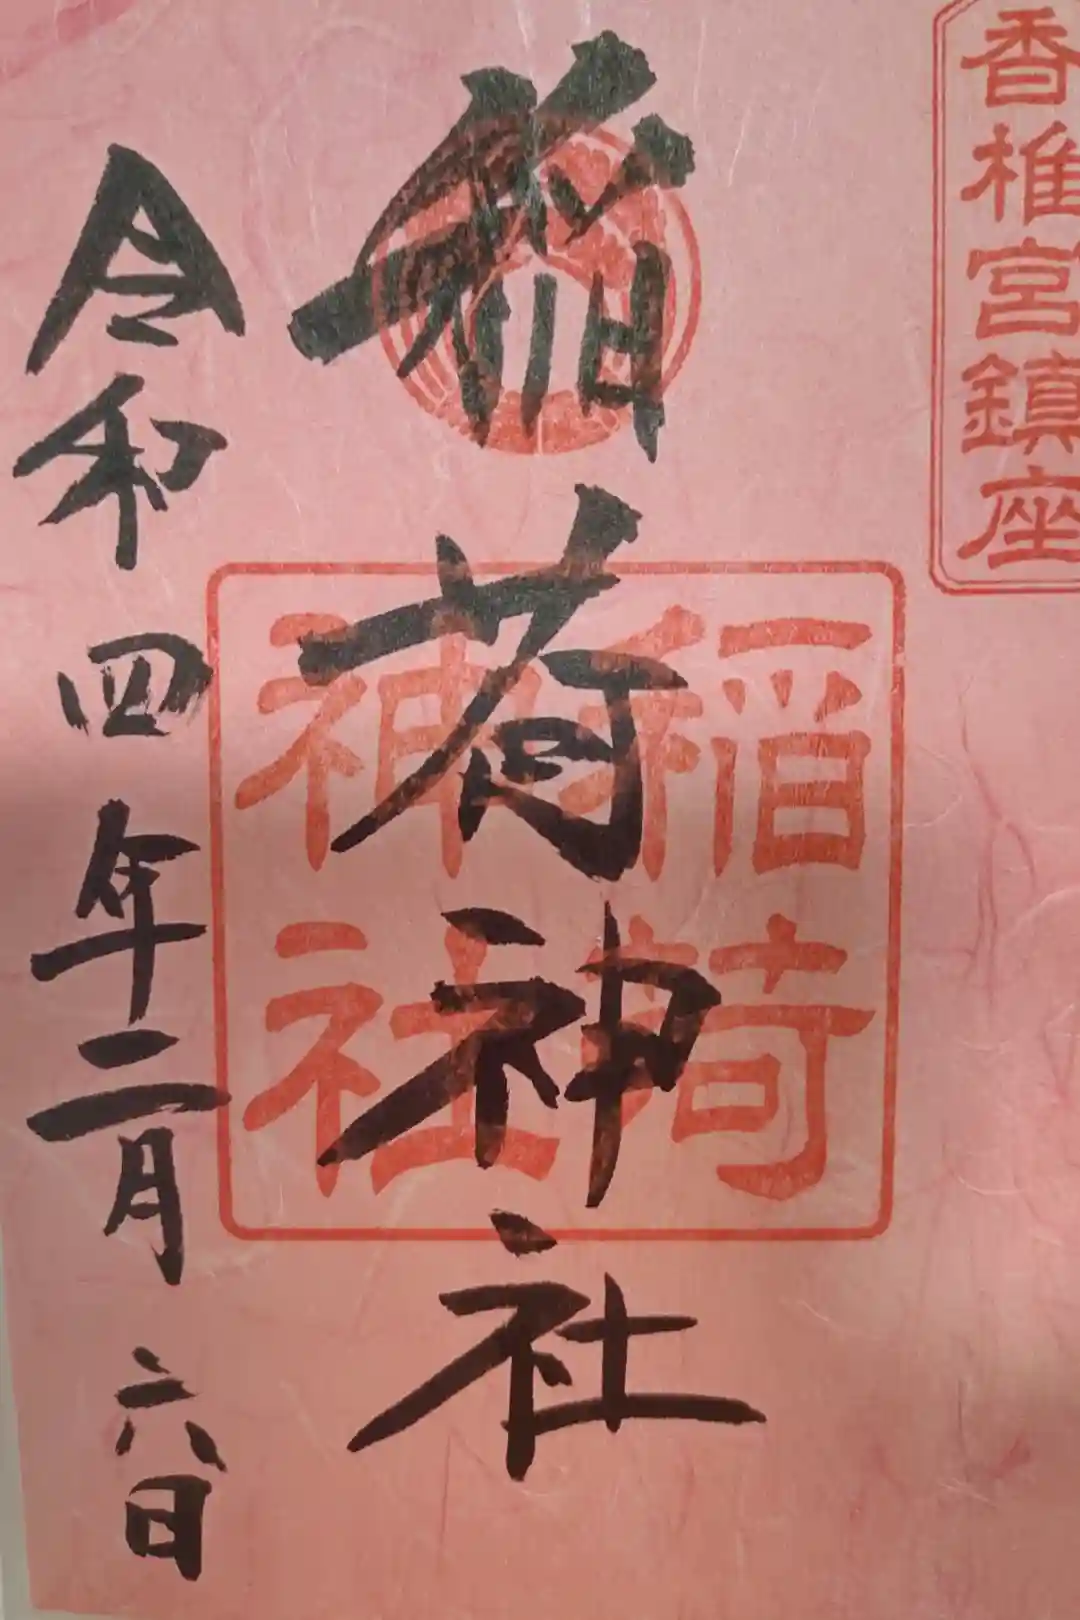 香椎宮鎮座
稲荷神社
稲荷神社
令和四年二月六日